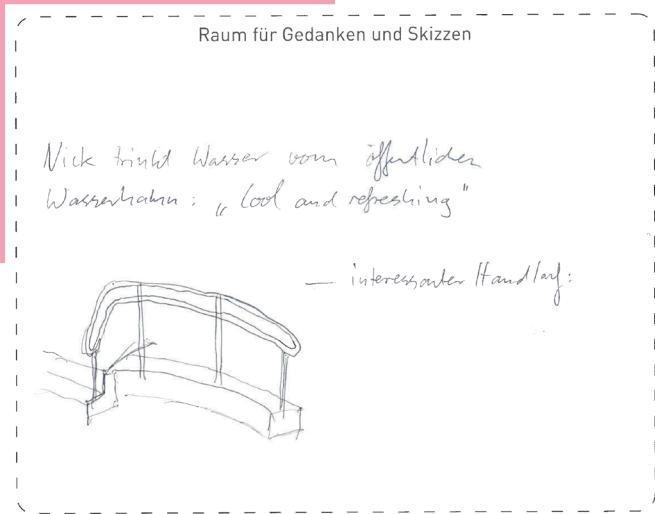 Raum für Gedanken und Skizzen
Nick trinkt Wasser vom öffentlichen
Wasserhahn: „Cool and refreshing"
— interessanter Handlauf: